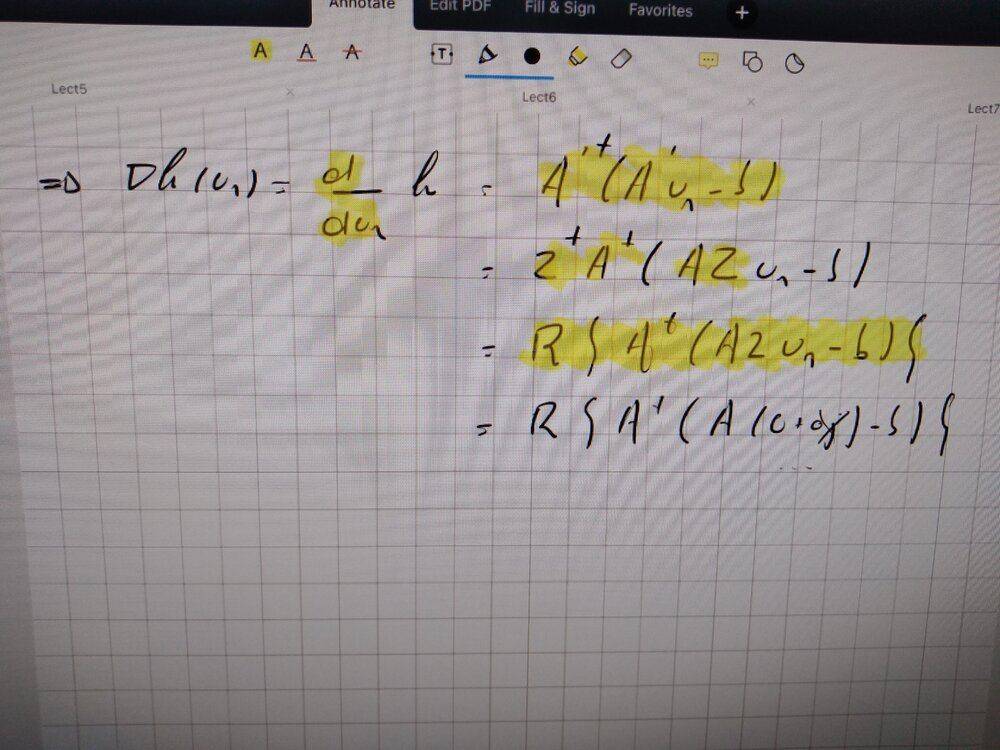 Annotate Edit PDF Fill & Sign Favorites +
A A A T
Lect5 × Lect6 × Lect7
⇒ Dh(u₁) = d/du₁ h = A'⁺(A'u₁ - b)
= Z⁺A⁺(AZu₁ - b)
= R{A⁺(AZu₁ - b)}
= R{A⁺(A(u+0j) - b)}